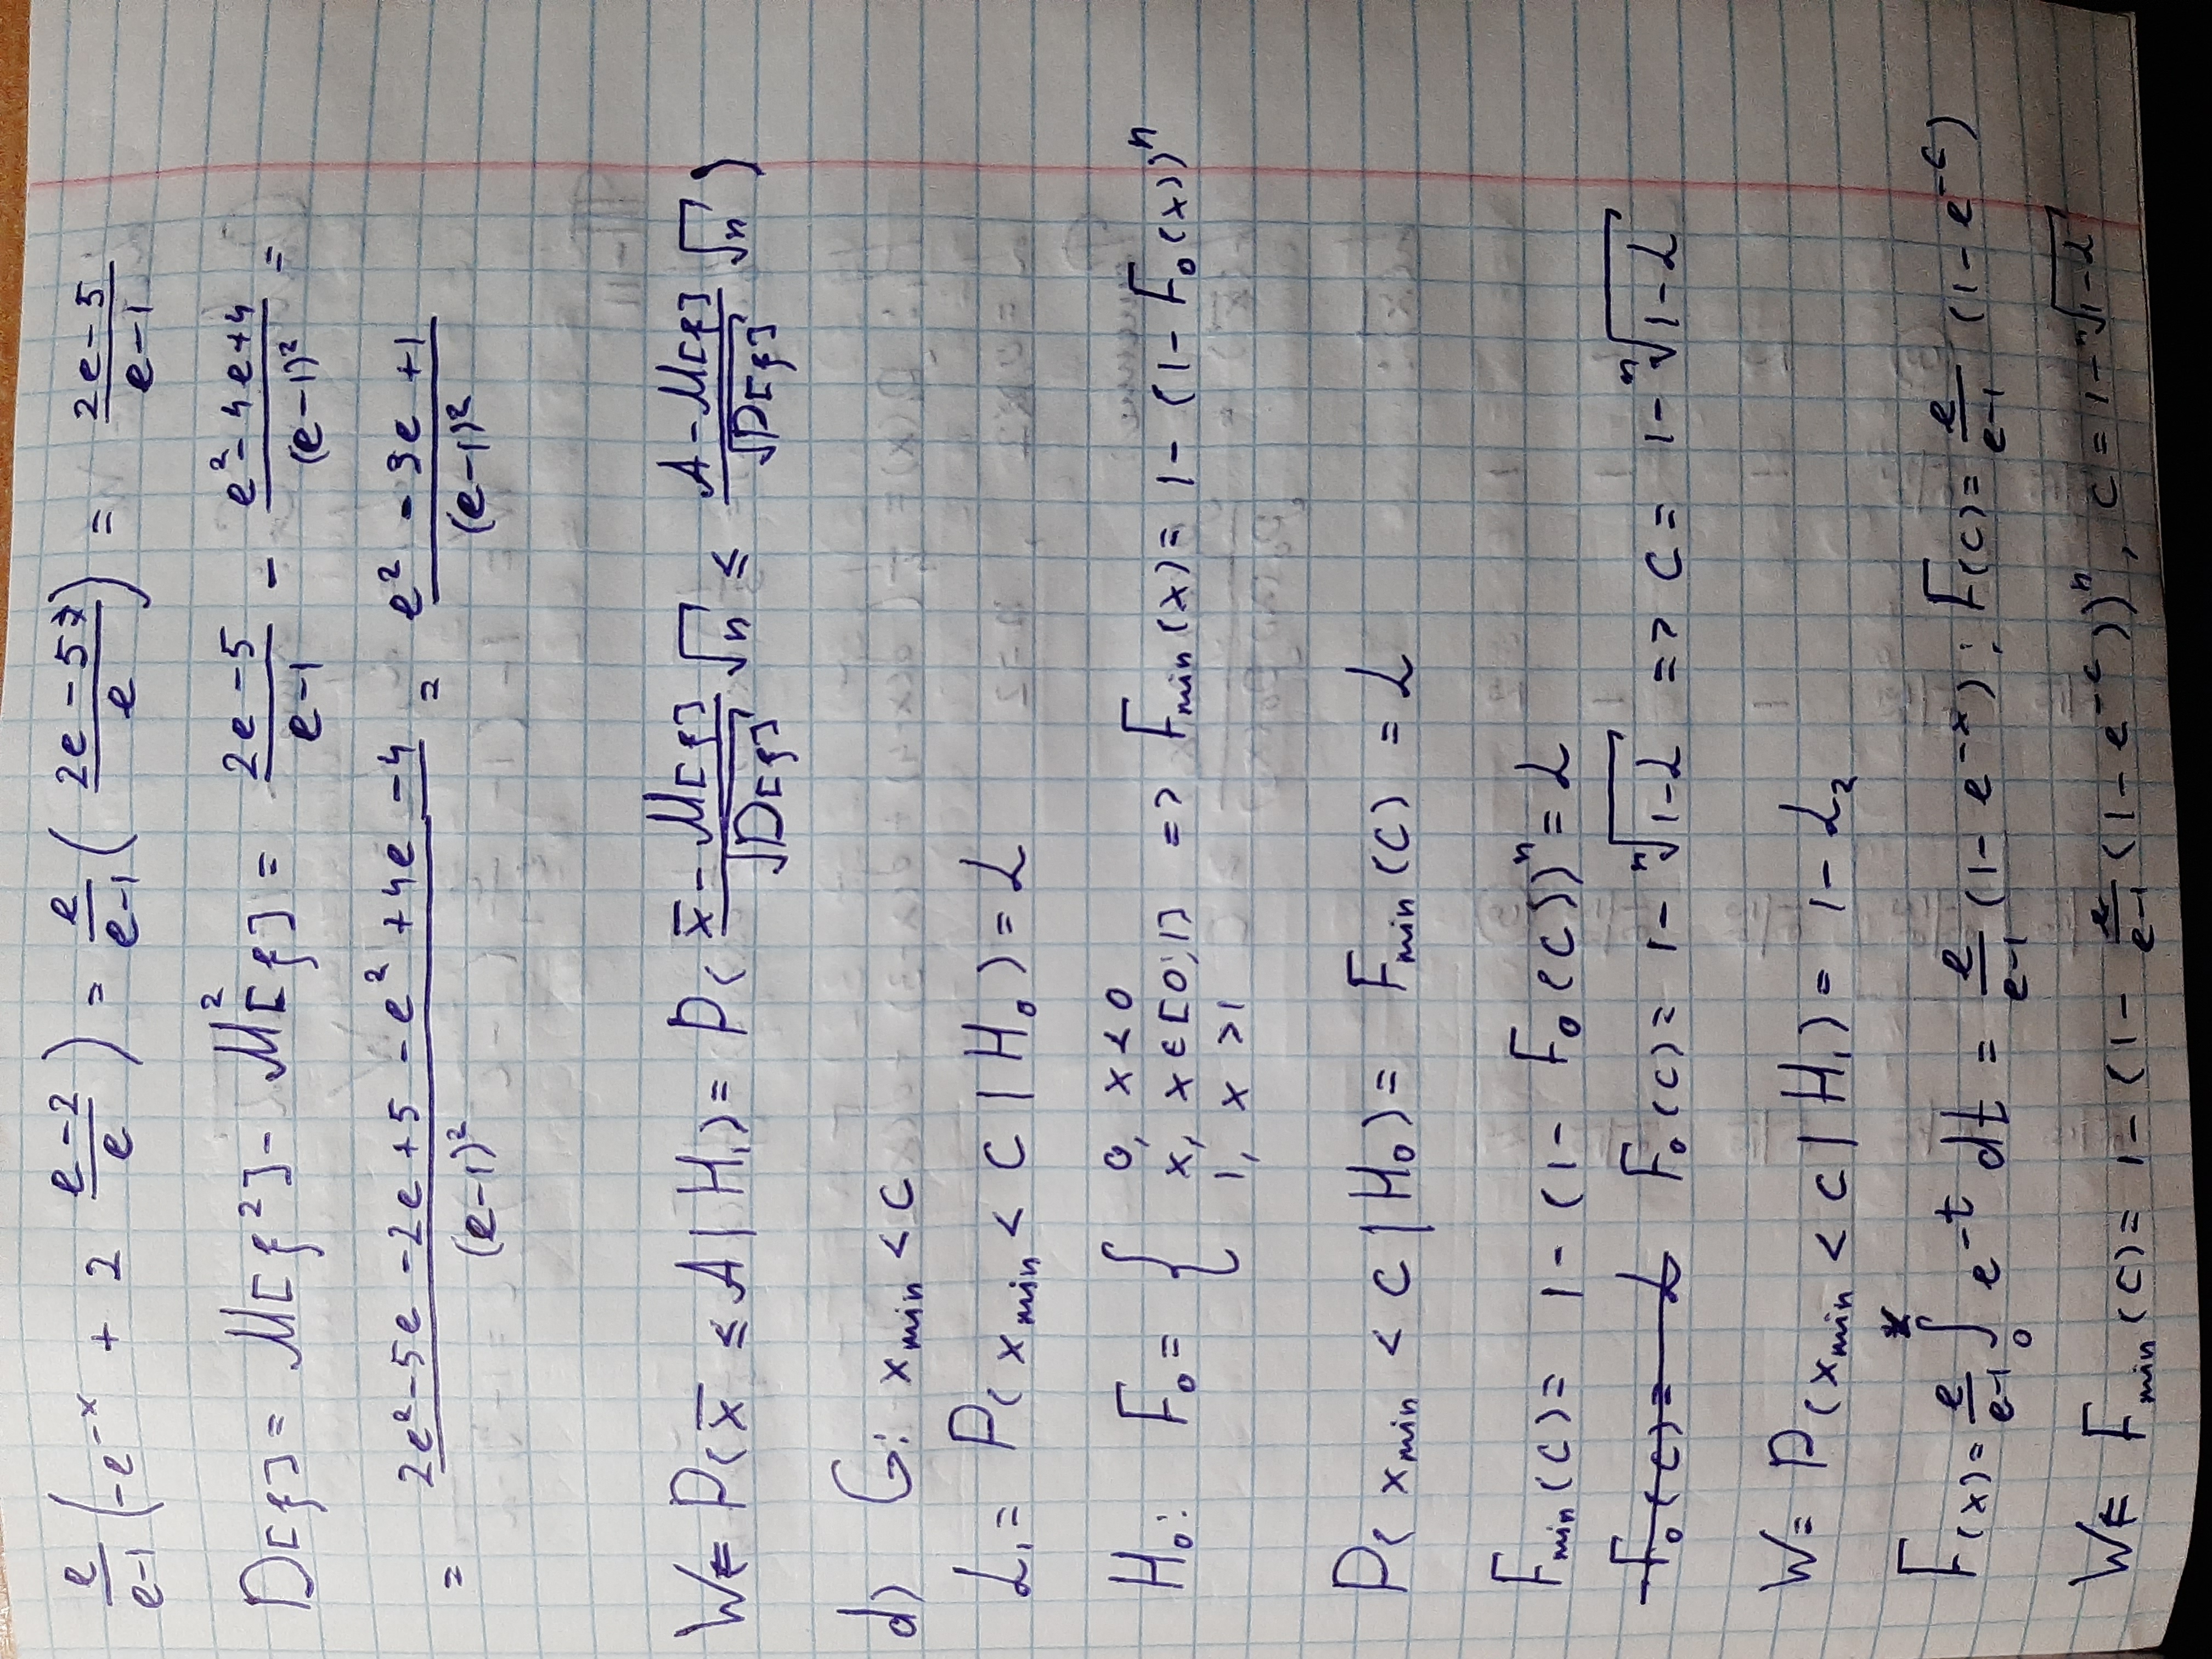 e/(e-1) (-e^{-x} + 2 (e-2)/e) = e/(e-1) ((2e-5)/e) = (2e-5)/(e-1)
D[ξ] = M[ξ²] - M²[ξ] = (2e-5)/(e-1) - (e²-4e+4)/(e-1)² =
= (2e²-5e-2e+5-e²+4e-4)/(e-1)² = (e²-3e+1)/(e-1)²
W = P(x̄ ≤ A | H₁) = P((x̄ - M[ξ])/√D[ξ] √n ≤ (A - M[ξ])/√D[ξ] √n)
d) G: x_min < c
α₁ = P(x_min < c | H₀) = α
H₀: F₀ = { 0, x<0
x, x∈[0;1] => F_min(x) = 1-(1-F₀(x))ⁿ
1, x>1
P(x_min < c | H₀) = F_min(c) = α
F_min(c) = 1-(1-F₀(c))ⁿ = α
F₀(c) = 1-ⁿ√(1-α) => c = 1-ⁿ√(1-α)
W = P(x_min < c | H₁) = 1-α₂
F(x) = e/(e-1) ∫₀ˣ e^{-t} dt = e/(e-1) (1-e^{-x}); F(c) = e/(e-1) (1-e^{-c})
W = F_min(c) = 1-(1- e/(e-1) (1-e^{-c}))ⁿ, c = 1-ⁿ√(1-α)